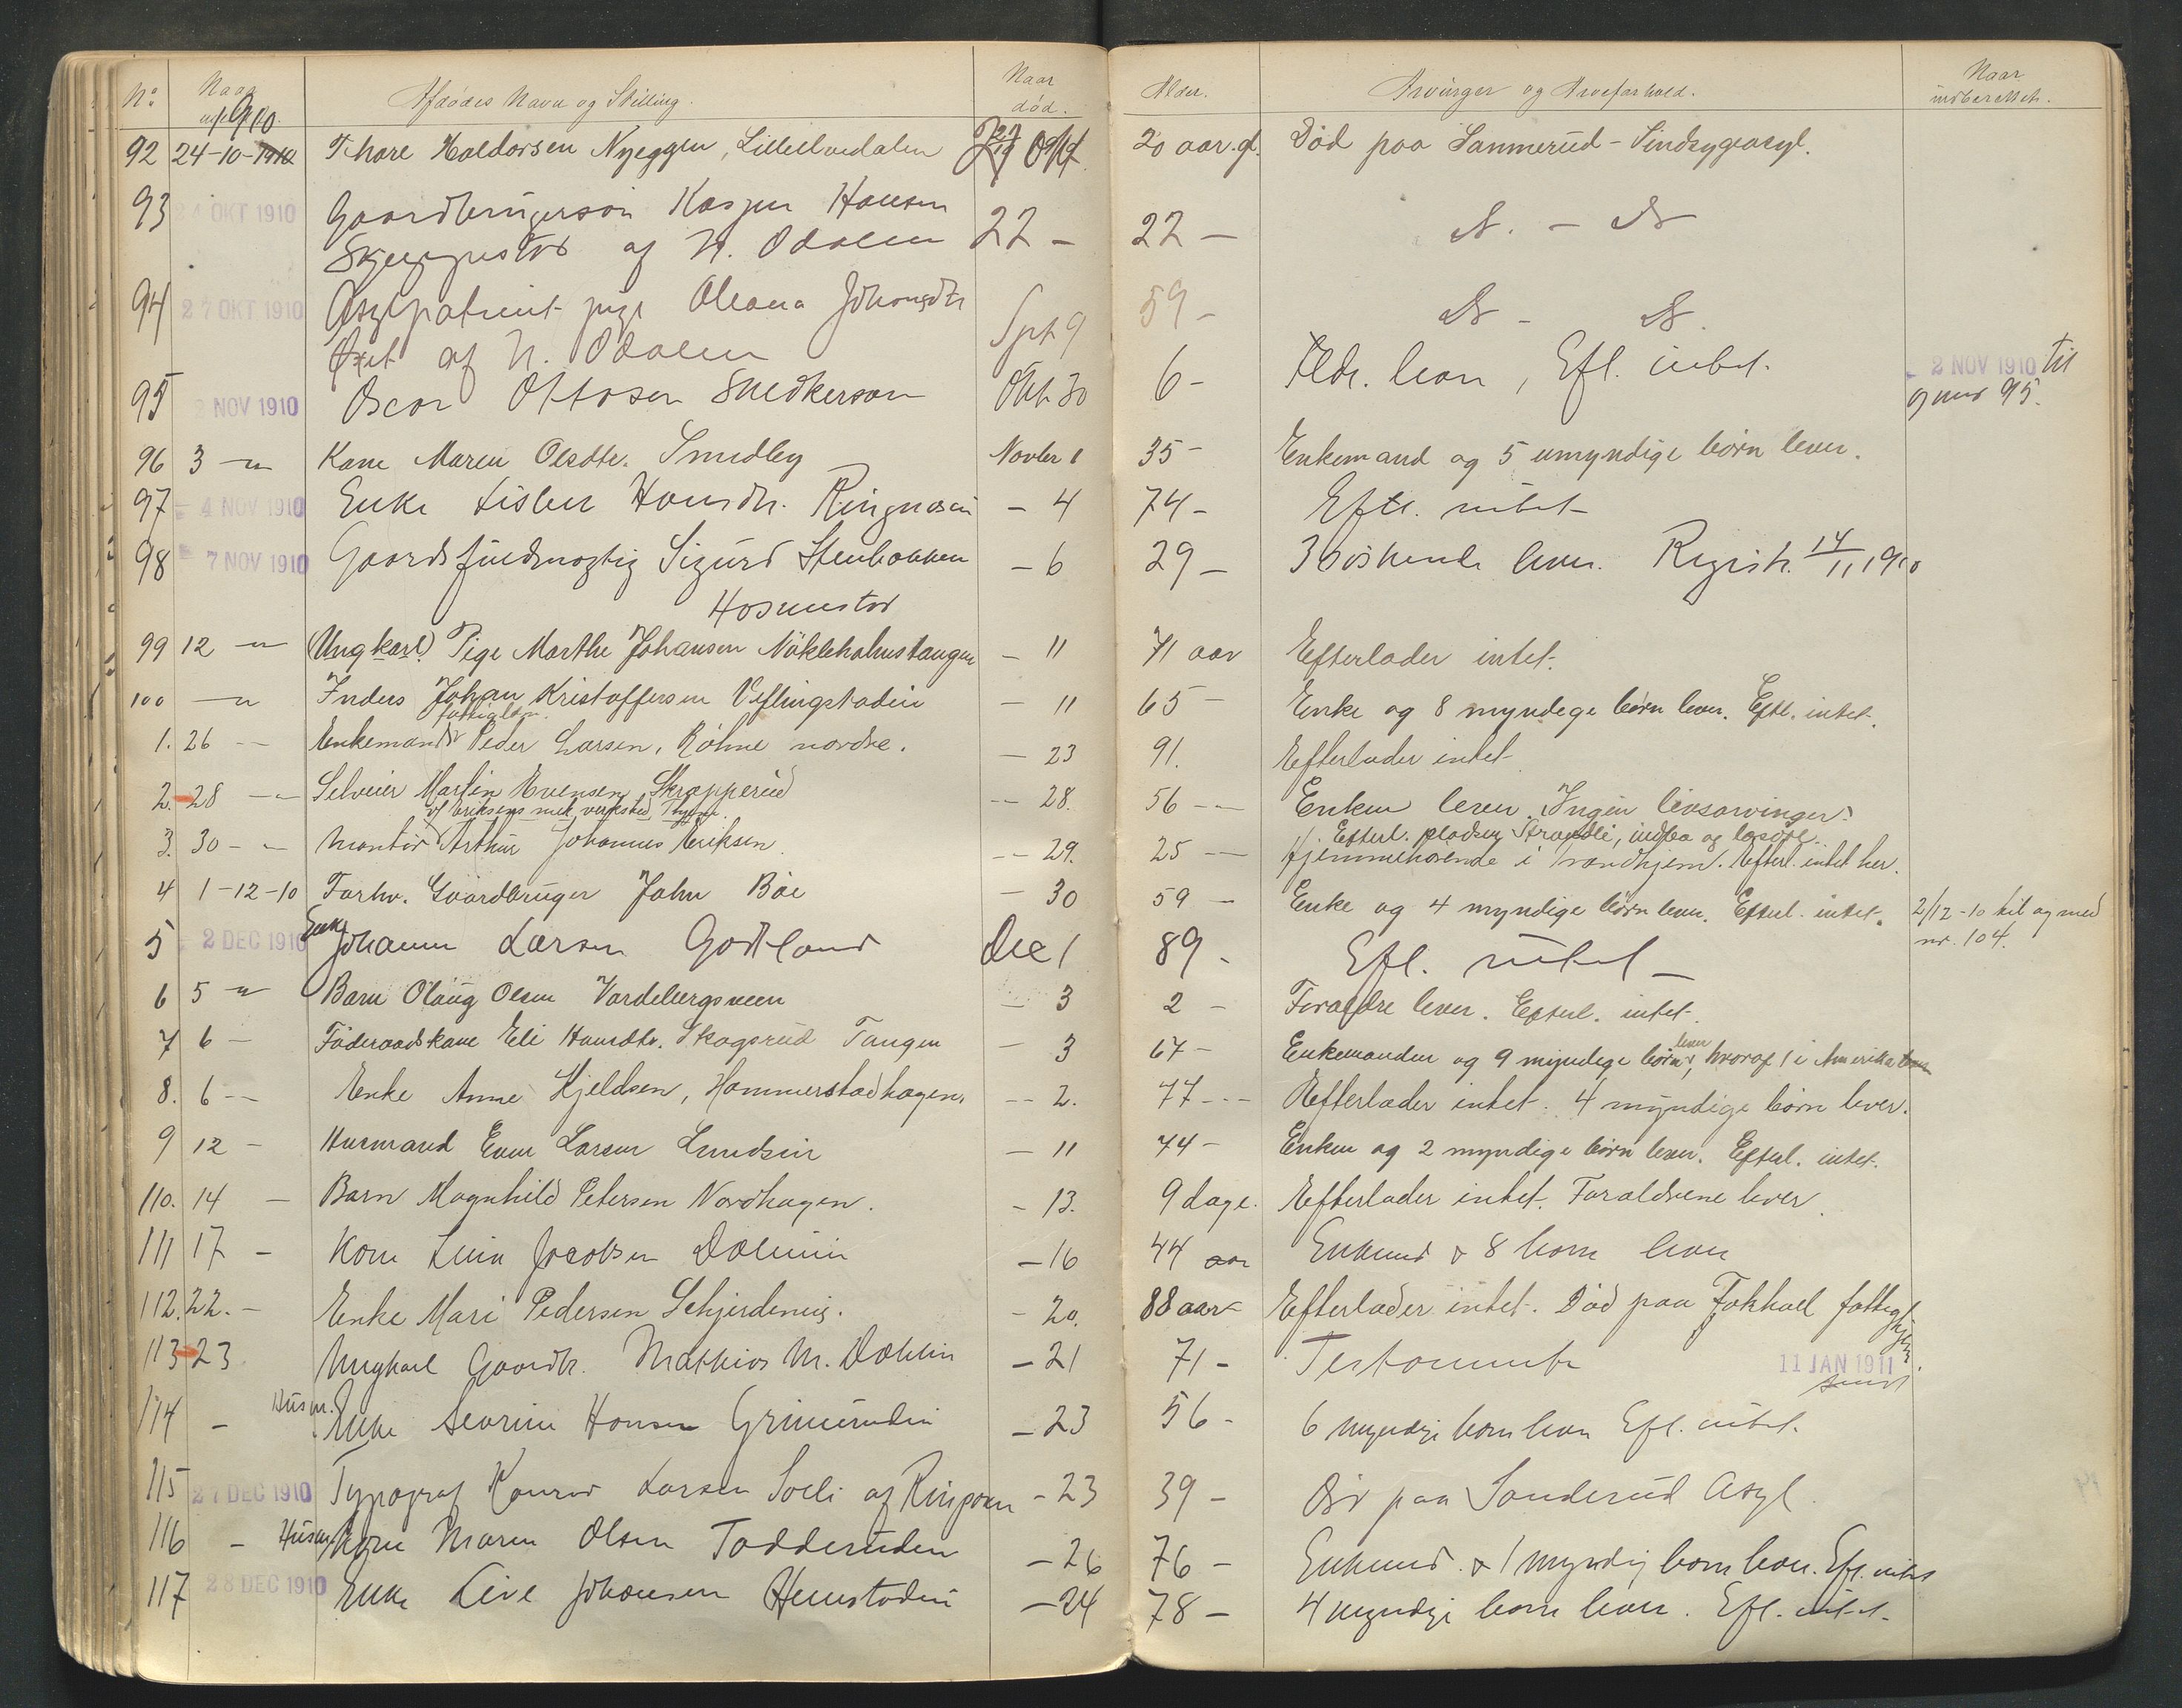 No Naar Afdødes Navn og Stilling. Naar død. Alder. Arvinger og Arveforhold. Naar indberettet.
1910
92 24-10-1910 Thore Haldorsen Nyeggen, Lilleelvedalen Okt 20 aar. gl. Død paa Sannerud - Sindsygeasyl.
93 24 OKT 1910 Gaardbrugersøn Kasper Hansen
af N. Odalen 22 - 22 -
94 27 OKT 1910 Asylpatient pige Oleana Johansdtr
af N. Odalen Spt 9 59 -
95 2 NOV 1910 Oscar Ottosen Snedkersøn Okt 30 6 - Eldr. lever, Efl. intet. 2 NOV 1910 til
og med 95.
96 3 -"- Kone Maren Olsdtr. Smedby Novbr 1 35 - Enkemand og 5 umyndige børn lever.
97 4 NOV 1910 Enke Lisbet Hansdtr. Ringnæsen - 4 74 - Eftl. intet
98 7 NOV 1910 Gaardsfuldmægtig Sigurd Stenbakken - 6 29 - 3 søskende lever. Registr. 14/11 1910
Hosmestad
99 12 -"- (Ungkarl) Pige Marthe Johansen Nökleholmstangen - 11 71 aar Efterlader intet.
100 -"- Inders Johan Kristoffersen Veflingstadeie - 11 65 - Enke og 8 myndige børn lever. Eftl. intet.
fattiglem.
1. 26 -- Enkemand Peder Larsen, Röhne nordre. - 23 91. Efterlader intet
2. 28 -- Selveier Martin Evensen Skrapperud -- 28. 56 -- Enken lever. Ingen livsarvinger.
v/ Eriksens mek. verksted, Efterl. pladsen Strandli, indbo og løsöre.
3. 30 -- Montör Arthur Johannes Eriksen -- 29. 25 -- Hjemmehörende i Trondhjem. Efterl. intet her.
4 1-12-10 Forhv. Gaardbruger John Böe - 30 59 - Enke og 4 myndige børn lever. Efterl. intet. 2/12-10 til og med
nr. 104.
5 2 DEC 1910 Enke Johanne Larsen Godtland Dec 1 89 - Efl. intet -
6 5 -"- Barn Olaug Olsen Vardebergsveen - 3 2 - Forældre lever. Efterl. intet.
7 6 - Föderaadskone Eli Hansdtr. Skogsrud Tangen - 3 67 - Enkemanden og 9 myndige børn lever, hvoraf 1 i Amerika
8. 6 -- Enke Anne Kjeldsen, Hammerstadhagen. -- 2. 77 -- Efterlader intet. 4 myndige børn lever.
9 12 - Husmand Even Larsen Lundseie - 11 74 - Enken og 2 myndige børn lever. Efterl. intet.
110. 14 - Barn Magnhild Petersen Nordhagen. - 13. 9 dage. Efterlader intet. Forældrene lever.
111 17 - Kone Lina Jacobsen Dæleneie - 16 44 aar Enkemd & 8 børn lever
112. 22. - Enke Mari Pedersen Schjerdeneie. - 20. 88 aar - Efterlader intet. Død paa Fokhol fattighjem.
113 23 Ungkarl Gaardbr. Mathias M. Dæhlin - 21 71 - Testamente 11 JAN 1911
sendt
114 - Husm. Enke Severine Hansen Grimerudeie - 23 56 - 6 myndige børn lever Efl. intet.
115 27 DEC 1910 Typograf Konrad Larsen Soeli af Ringsaker - 23 39 - Død paa Sanderud Asyl.
116 - Husm. kone Maren Olsen Tadderuden - 26 76 - Enkemd. & 1 myndig børn lever. Efl. intet
117 28 DEC 1910 Enke Live Johansen Hemstadeie - 24 78 - 4 myndige børn lever. Efl. intet.